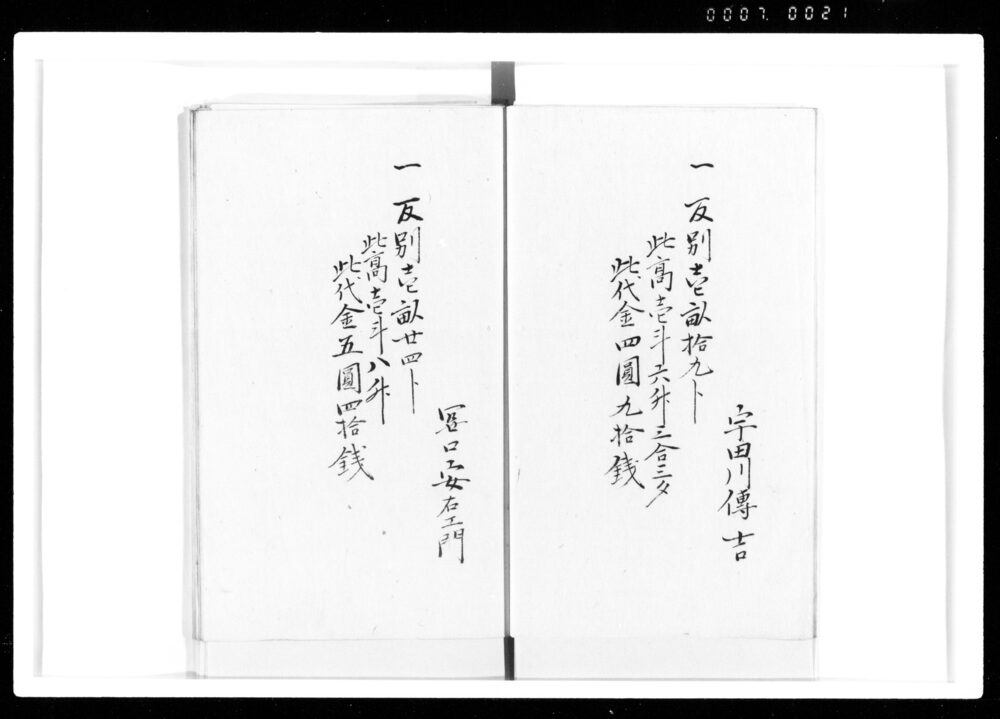 0007. 0021
宇田川傳吉
一 反別壱畝拾九卜
此高壱斗六升三合三夕
此代金四圓九拾銭
口安右エ門
一 反別壱畝廿四卜
此高壱斗八升
此代金五圓四拾銭